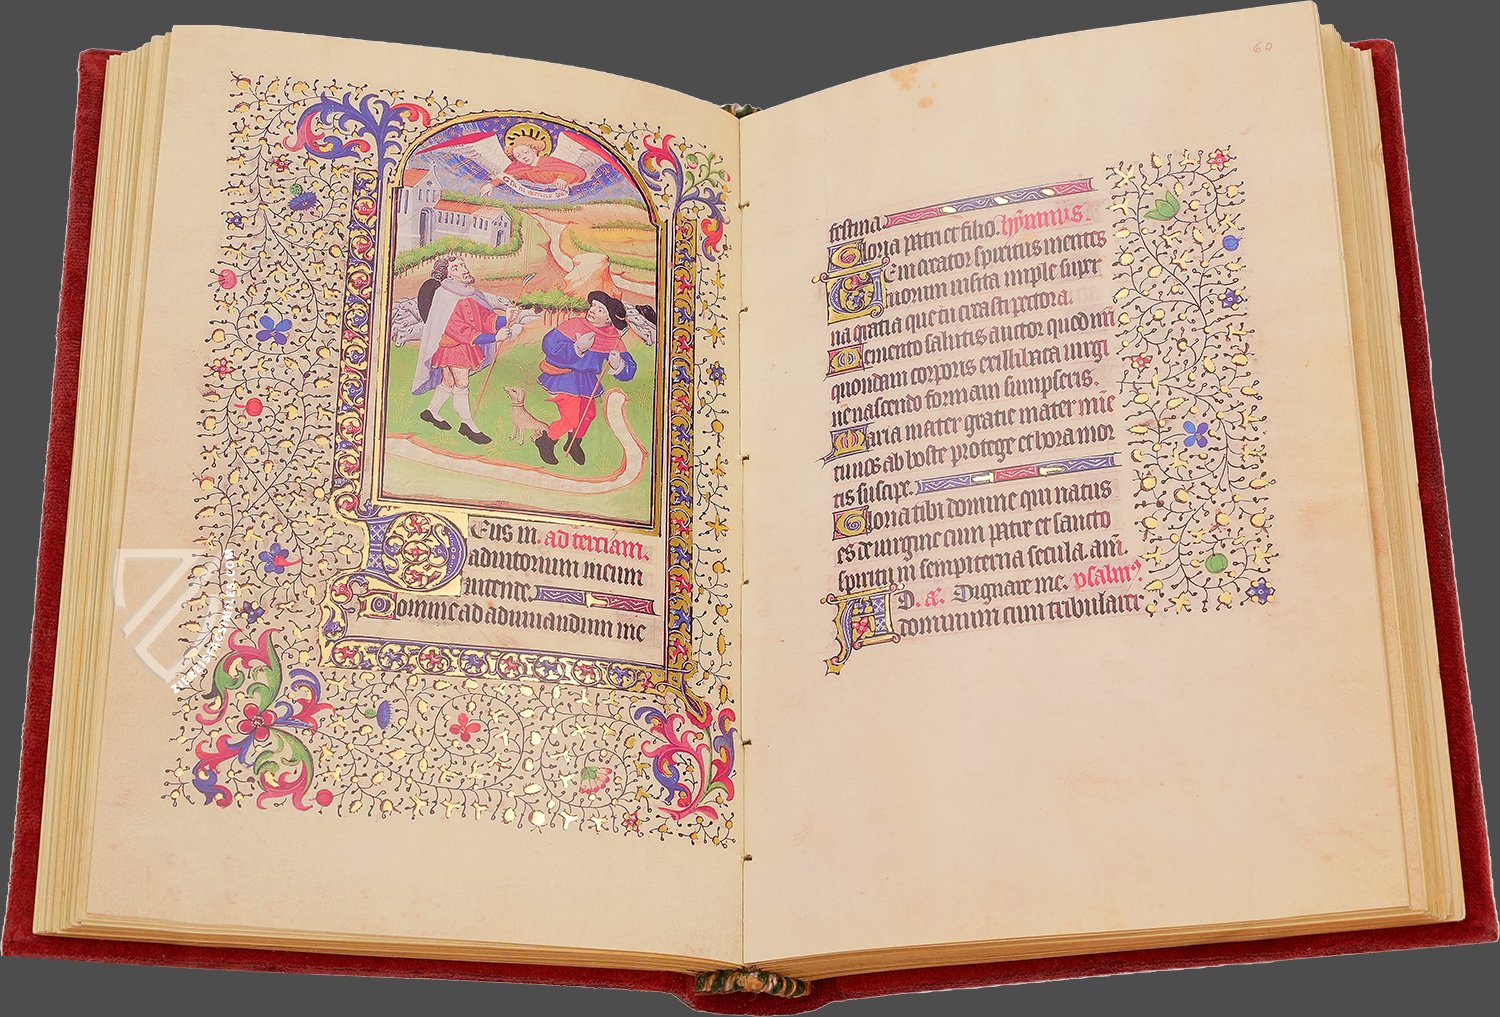 Eus in. ad terciam.
adiutorium meum
intende.
Domine ad adiuuandum me
ZIEREIS FACSIMILES.COM
60
festina.
Gloria patri et filio. hymnus.
Eni creator spiritus mentes
tuorum visita imple super
na gratia que tu creasti pectora.
Memento salutis auctor quod nri
quondam corporis ex illibata uirgi
ne nascendo formam sumpseris.
Maria mater gratie mater mie
tu nos ab hoste protege et hora mor
tis suscipe.
Gloria tibi domine qui natus
es de uirgine cum patre et sancto
spiritu in sempiterna secula. am.
D. æ. Dignare me. psalm9.
AD dominum cum tribularer